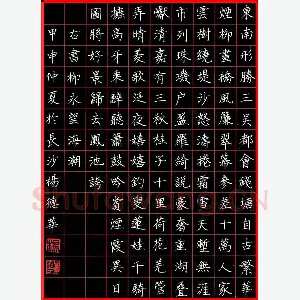 東南形勝三吳都會錢塘自古繁華
煙柳畫橋風簾翠幕參差十萬人家
雲樹繞堤沙怒濤卷霜雪天塹無涯
市列珠璣戶盈羅綺競豪奢重湖疊
巘清嘉有三秋桂子十里荷花羌管
弄晴菱歌泛夜嬉嬉釣叟蓮娃千騎
擁高牙乘醉聽簫鼓吟賞煙霞異日
圖將好景歸去鳳池誇
右書柳永望海潮
甲申仲夏於長沙楊德華